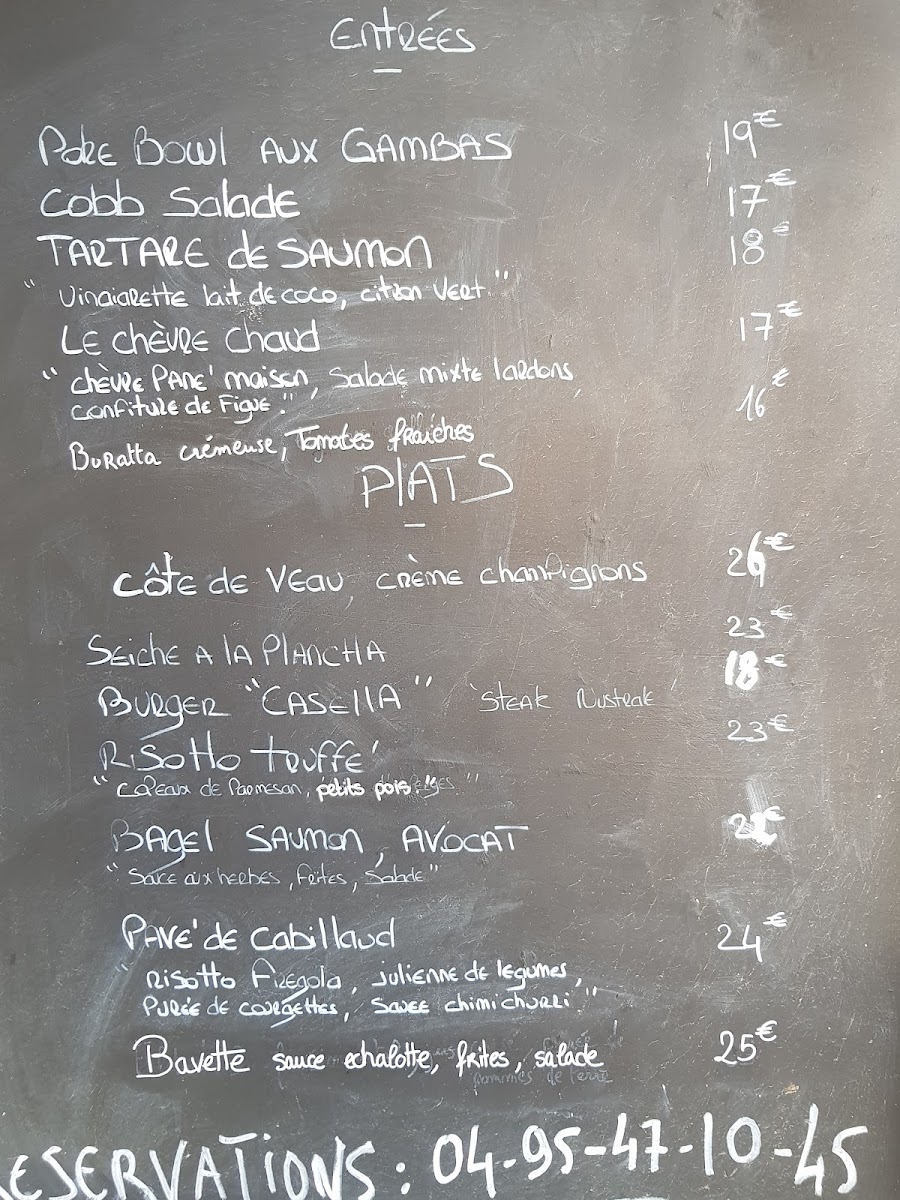 Entrées
Poke Bowl aux Gambas 19€
Cobb Salade 17€
Tartare de Saumon 18€
" Vinaiarette lait de coco, citron vert "
Le chèvre chaud 17€
" chèvre Pané maison, salade mixte lardons
confiture de Figue." 16€
Buratta crémeuse, Tomates fraîches
Plats
Côte de veau, crème champignons 26€
Seiche a la Plancha 23€
Burger "Casella" 'Steak 18€
Risotto truffé 23€
" copeaux de Parmesan, petits pois "
Bagel saumon, avocat
" Sauce aux herbes, frites, salade "
Pavé de cabillaud 24€
" Risotto Fregola, julienne de légumes,
Purée de courgettes, sauce chimichurri "
Bavette sauce echalotte, frites, salade 25€
pommes de terre
ESERVATIONS : 04-95-47-10-45